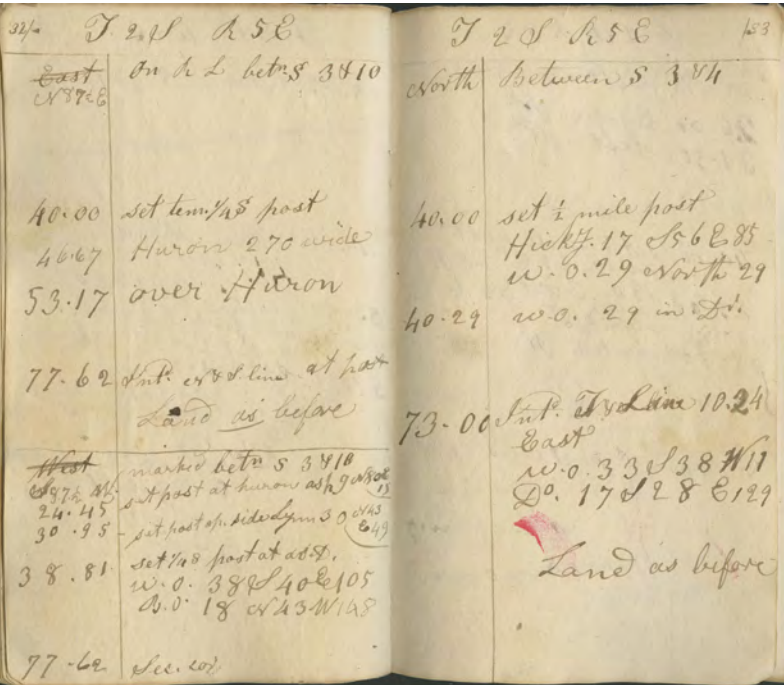 T 2 S R 5 E
East On R L betn. S 3 & 10
N 87½ E
40.00 set tem. 1/4 S post
46.67 Huron 270 wide
53.17 over Huron
77.62 Int. N & S line at post
Land as before
West marked betn S 3 & 10
S 87½ W
24.45 set post at huron ash 9
30.95 set post op. side Lynn 30 N 43 E 49
38.81 set 1/4 S post at as d.
W.O. 38 S 40 E 105
B.O. 18 N 43 W 148
77.62 Sec. cor.
T 2 S R 5 E 153
North Between S 3 & 4
40.00 set ½ mile post
Hicky. 17 S 56 E 85
W.O. 29 North 29
40.29 W.O. 29 in Do.
73.00 Int. T. Line 10.24
East
W.O. 33 S 38 W 11
Do. 17 S 28 E 129
Land as before